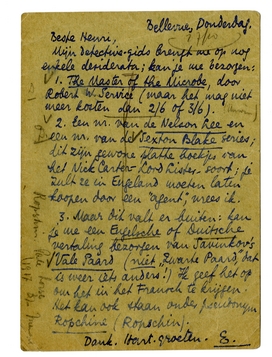 Bellevue, Donderdag.
Beste Henri,
Mijn detective-gids brengt me op nog
enkele desiderata; kan je me bezorgen:
1. The Master of the Microbe, door
Robert W. Service (maar het mag niet
meer kosten dan 2/6 of 3/6).
2. Een nr. van de Nelson Lee en
een nr. van de Sexton Blake series;
dit zijn gewone platte boekjes van
het Nick Carter-Lord Lister-soort; je
zult ze in Engeland moeten laten
koopen door een "agent", vrees ik.
3. Maar dit valt er buiten: kan
je me een Engelsche of Duitsche
vertaling bezorgen van Savinkov's
Vale Paard (niet Zwarte Paard, dat
is weer iets anders!) Ik geef het op
om het in het Fransch te krijgen.
Het kan ook staan onder pseudonym
Ropchine (Ropschin).
Dank. Hart. groeten. E.
Ropshin: The Pale Horse